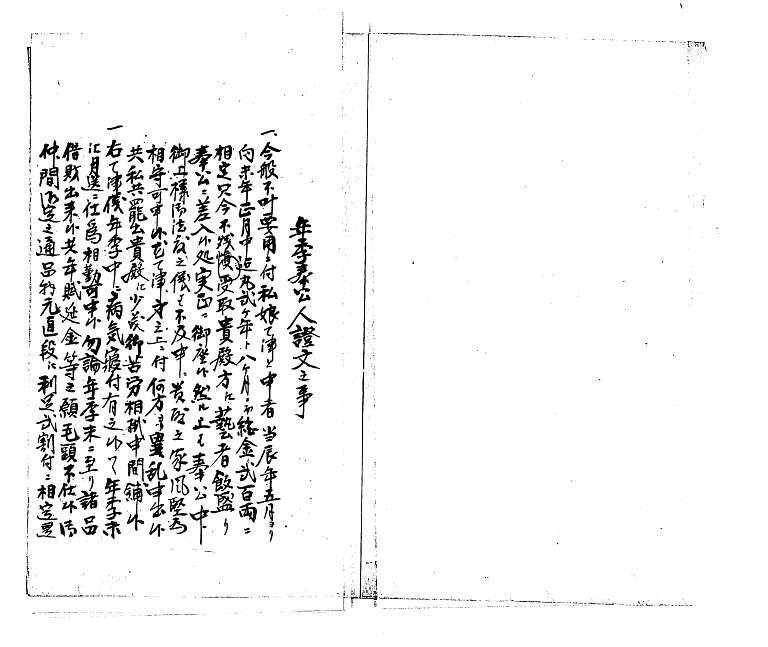 年季奉公人證文之事
一、今般不叶要用ニ付私娘て津と申者当辰年五月ヨリ
向未年正月中迄丸弐ヶ年ト八ヶ月ニ而給金弐百両ニ
相定只今不残慥受取貴殿方に藝者飯盛り
奉公ニ差入候処実正ニ御座候然ル上ハ奉公中ハ
御上様御法度之儀ハ不及申ニ貴殿之家風堅為
相守可申候て津身之上ニ付何方ゟ異乱申出候
共私共罷出貴殿に少茂御苦労相掛申間鋪候
一右て津儀年季中ニ病気寝付有之候ハヽ年季未
に月送ニ仕為相勤可申候勿論年季末ニ至リ諸品
借財出来候共年賦延金等之願毛頭不仕候尚
仲間御定之通品物元直段に利足弐割付ニ相定置